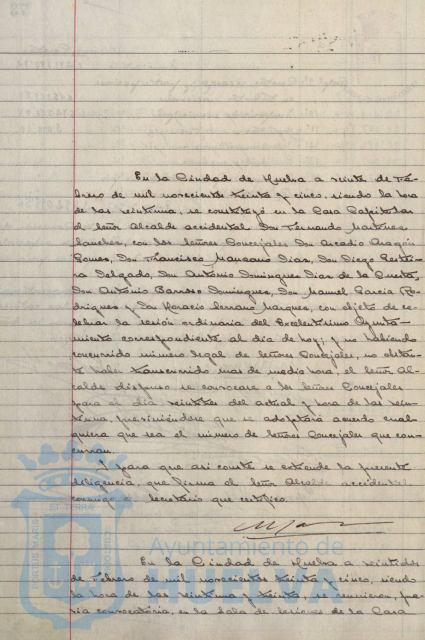 En la Ciudad de Huelva a veinte de Fe-
brero de mil novecientos treinta y cinco, siendo la hora
de las veintiuna, se constituyó en la Casa Capitular
el señor Alcalde accidental Don Fernando Martinez
Sanchez, con los señores Concejales Don Arcadio Aragón
Gomez, Don Francisco Manzano Diaz, Don Diego
Delgado, Don Antonio Dominguez Diaz de la Cuesta,
Don Antonio Barroso Dominguez, Don Manuel Garcia Ro-
driguez y Don Horacio Serrano Marquez, con objeto de ce-
lebrar la sesión ordinaria del Excelentisimo Ayunta-
miento correspondiente al dia de hoy; y no habiendo
concurrido número legal de señores Concejales, no obstan-
te haber transcurrido mas de media hora, el señor Al-
calde dispuso se convocara a los señores Concejales
para el dia veintidos del actual y hora de las vein-
tiuna, previniéndose que se adoptará acuerdo cual-
quiera que sea el número de señores Concejales que con-
curran.
Y para que asi conste se extiende la presente
diligencia, que firma el señor Alcalde accidental
conmigo el Secretario que certifico.
En la Ciudad de Huelva a veintidos
de Febrero de mil novecientos treinta y cinco, siendo
la hora de las veintiuna y treinta, se reunieron, pre-
via convocatoria, en la Sala de Sesiones de la Casa
Ayuntamiento de
HUELVA